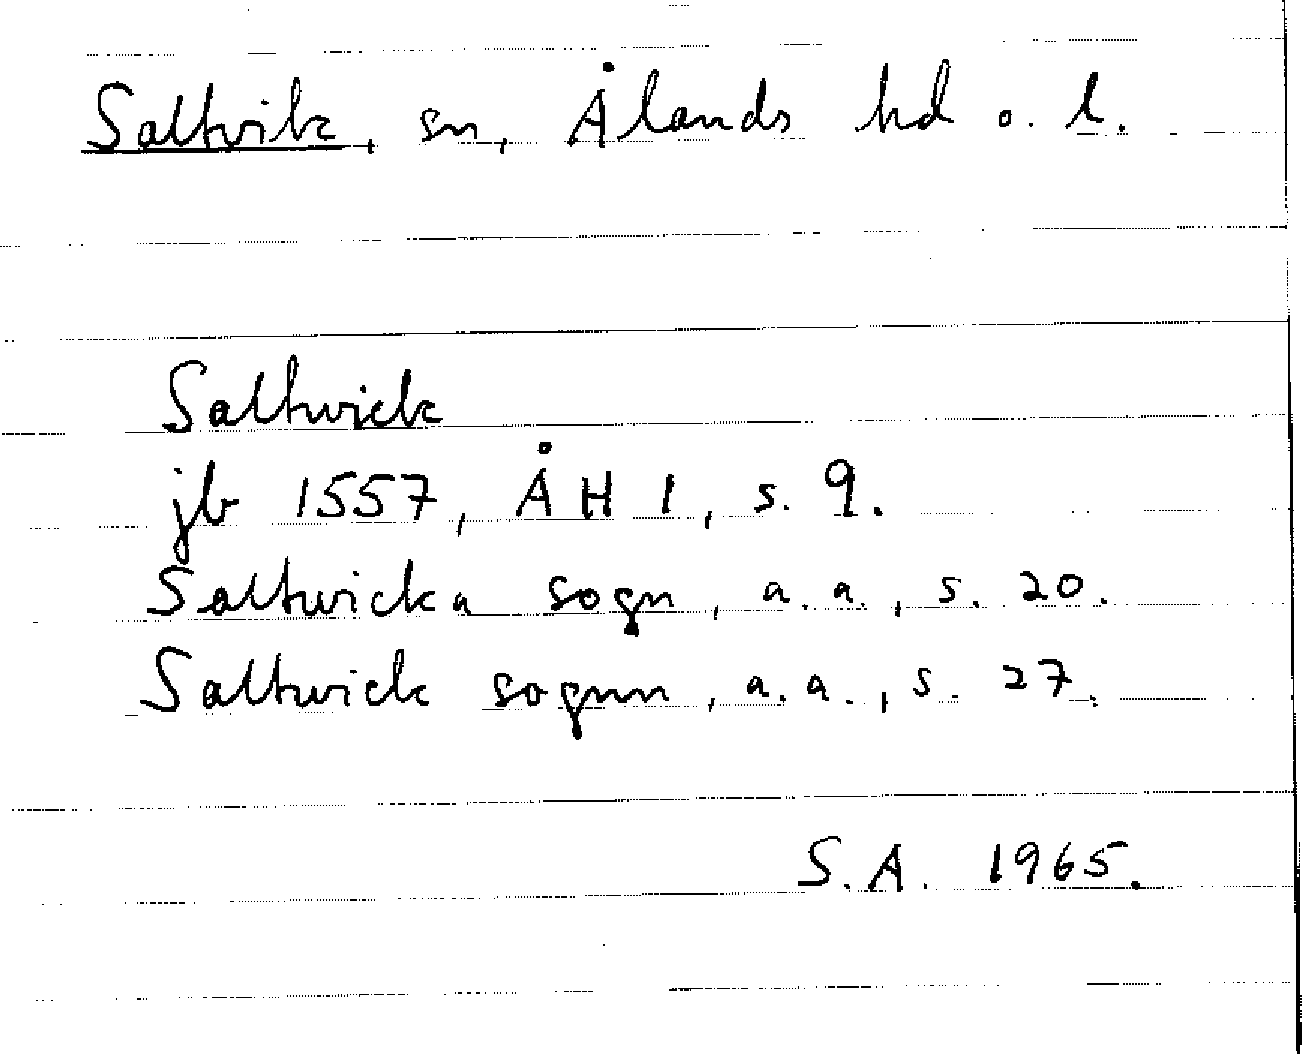 Saltvik, sn, Ålands hd o. l.
Saltwick
jb 1557, ÅH 1, s. 9.
Saltwicka sogn, a.a., s. 20.
Saltwick sognn, a.a., s. 27.
S.A. 1965.